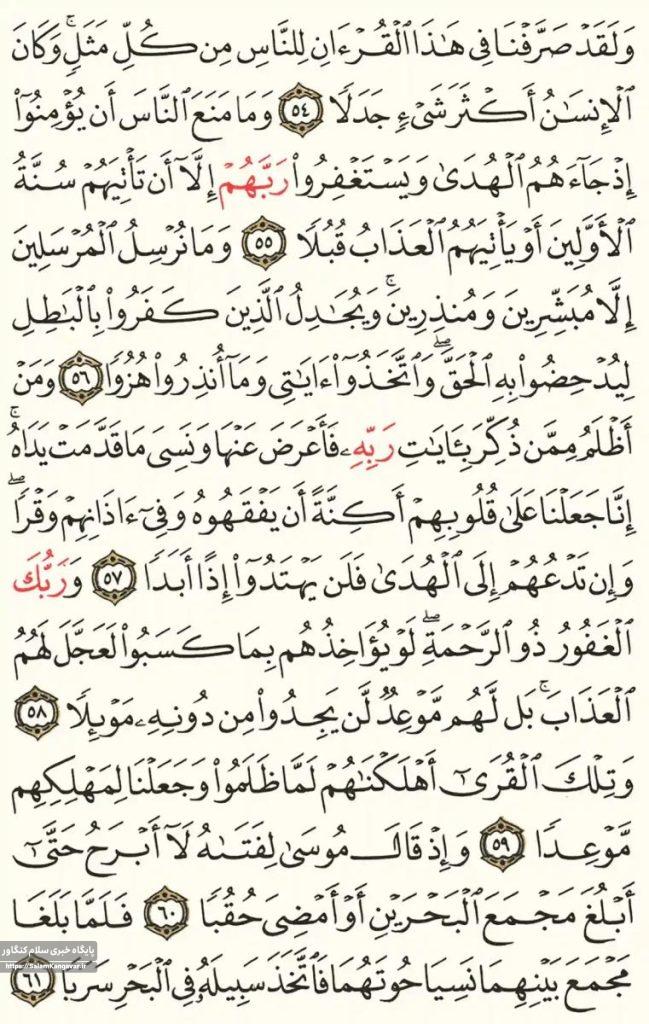 وَلَقَدْ صَرَّفْنَا فِي هَٰذَا ٱلْقُرْءَانِ لِلنَّاسِ مِن كُلِّ مَثَلٍۚ وَكَانَ
ٱلْإِنسَٰنُ أَكْثَرَ شَىْءٍ جَدَلًا ٥٤ وَمَا مَنَعَ ٱلنَّاسَ أَن يُؤْمِنُوٓا۟
إِذْ جَآءَهُمُ ٱلْهُدَىٰ وَيَسْتَغْفِرُوا۟ رَبَّهُمْ إِلَّآ أَن تَأْتِيَهُمْ سُنَّةُ
ٱلْأَوَّلِينَ أَوْ يَأْتِيَهُمُ ٱلْعَذَابُ قُبُلًا ٥٥ وَمَا نُرْسِلُ ٱلْمُرْسَلِينَ
إِلَّا مُبَشِّرِينَ وَمُنذِرِينَۚ وَيُجَٰدِلُ ٱلَّذِينَ كَفَرُوا۟ بِٱلْبَٰطِلِ
لِيُدْحِضُوا۟ بِهِ ٱلْحَقَّۖ وَٱتَّخَذُوٓا۟ ءَايَٰتِى وَمَآ أُنذِرُوا۟ هُزُوًا ٥٦ وَمَنْ
أَظْلَمُ مِمَّن ذُكِّرَ بِـَٔايَٰتِ رَبِّهِۦ فَأَعْرَضَ عَنْهَا وَنَسِىَ مَا قَدَّمَتْ يَدَاهُۚ
إِنَّا جَعَلْنَا عَلَىٰ قُلُوبِهِمْ أَكِنَّةً أَن يَفْقَهُوهُ وَفِىٓ ءَاذَانِهِمْ وَقْرًاۖ
وَإِن تَدْعُهُمْ إِلَى ٱلْهُدَىٰ فَلَن يَهْتَدُوٓا۟ إِذًا أَبَدًا ٥٧ وَرَبُّكَ
ٱلْغَفُورُ ذُو ٱلرَّحْمَةِۖ لَوْ يُؤَاخِذُهُم بِمَا كَسَبُوا۟ لَعَجَّلَ لَهُمُ
ٱلْعَذَابَۚ بَل لَّهُم مَّوْعِدٌ لَّن يَجِدُوا۟ مِن دُونِهِۦ مَوْئِلًا ٥٨
وَتِلْكَ ٱلْقُرَىٰٓ أَهْلَكْنَٰهُمْ لَمَّا ظَلَمُوا۟ وَجَعَلْنَا لِمَهْلِكِهِم
مَّوْعِدًا ٥٩ وَإِذْ قَالَ مُوسَىٰ لِفَتَىٰهُ لَآ أَبْرَحُ حَتَّىٰٓ
أَبْلُغَ مَجْمَعَ ٱلْبَحْرَيْنِ أَوْ أَمْضِىَ حُقُبًا ٦٠ فَلَمَّا بَلَغَا
مَجْمَعَ بَيْنِهِمَا نَسِيَا حُوتَهُمَا فَٱتَّخَذَ سَبِيلَهُۥ فِى ٱلْبَحْرِ سَرَبًا ٦١
پایگاه خبری سلام کنگاور
https://SalamKangavar.ir